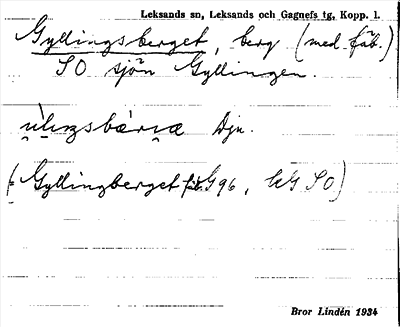 Leksands sn, Leksands och Gagnefs tg, Kopp. l.
Gyllingsberget, berg (med fäb.)
SO sjön Gyllingen.
Dju.
(= Gyllingberget fäb. G 96, kG SO)
Bror Lindén 1934